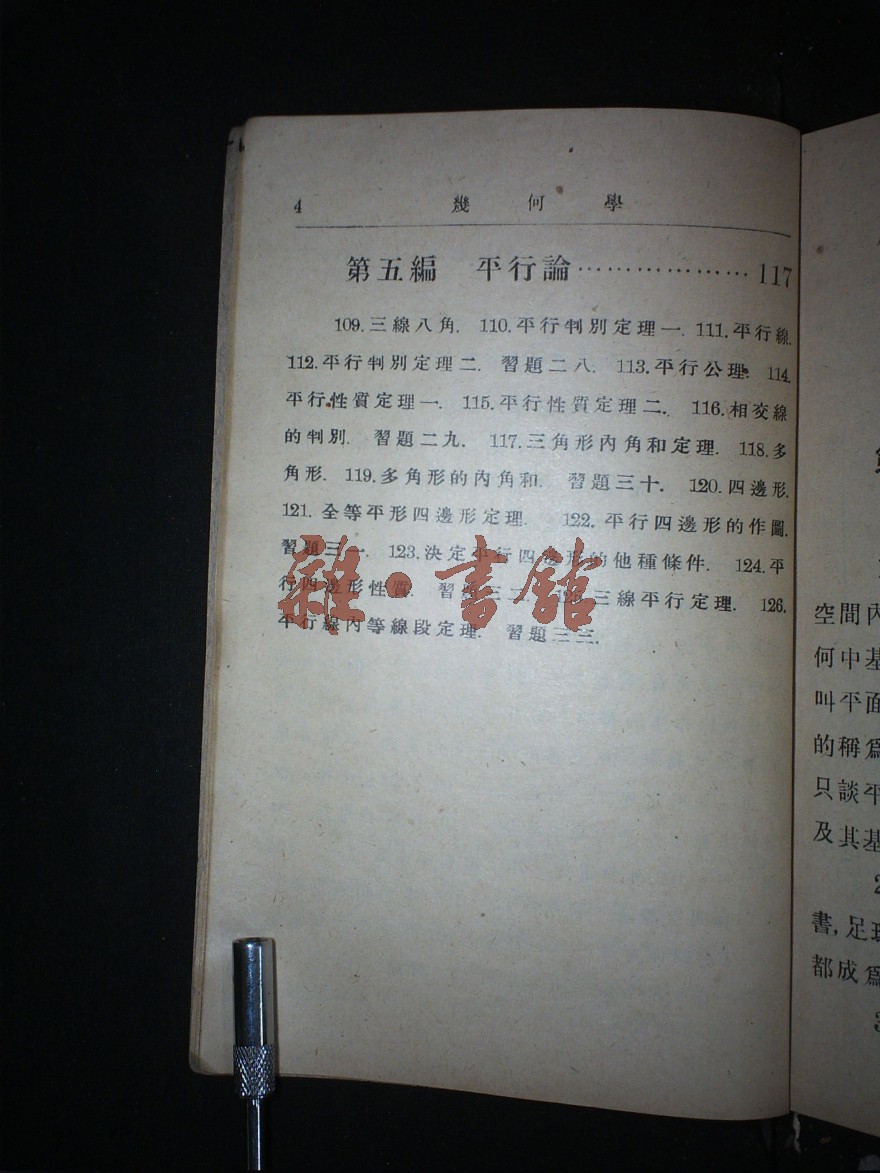 4 幾何學
第五編 平行論………………… 117
109.三線八角. 110.平行判別定理一. 111.平行線.
112.平行判別定理二. 習題二八. 113.平行公理. 114.
平行性質定理一. 115.平行性質定理二. 116.相交線
的判別. 習題二九. 117.三角形內角和定理. 118.多
角形. 119.多角形的內角和. 習題三十. 120.四邊形.
121.全等平形四邊形定理. 122.平行四邊形的作圖.
習題三一. 123.決定平行四邊形的他種條件. 124.平
行四邊形性質. 習題三二. 125.三線平行定理. 126.
平行線內等線段定理. 習題三三.
雜·書館
空間內
何中基
叫平面
的稱爲
只談平
及其基
2
書,足球
都成爲